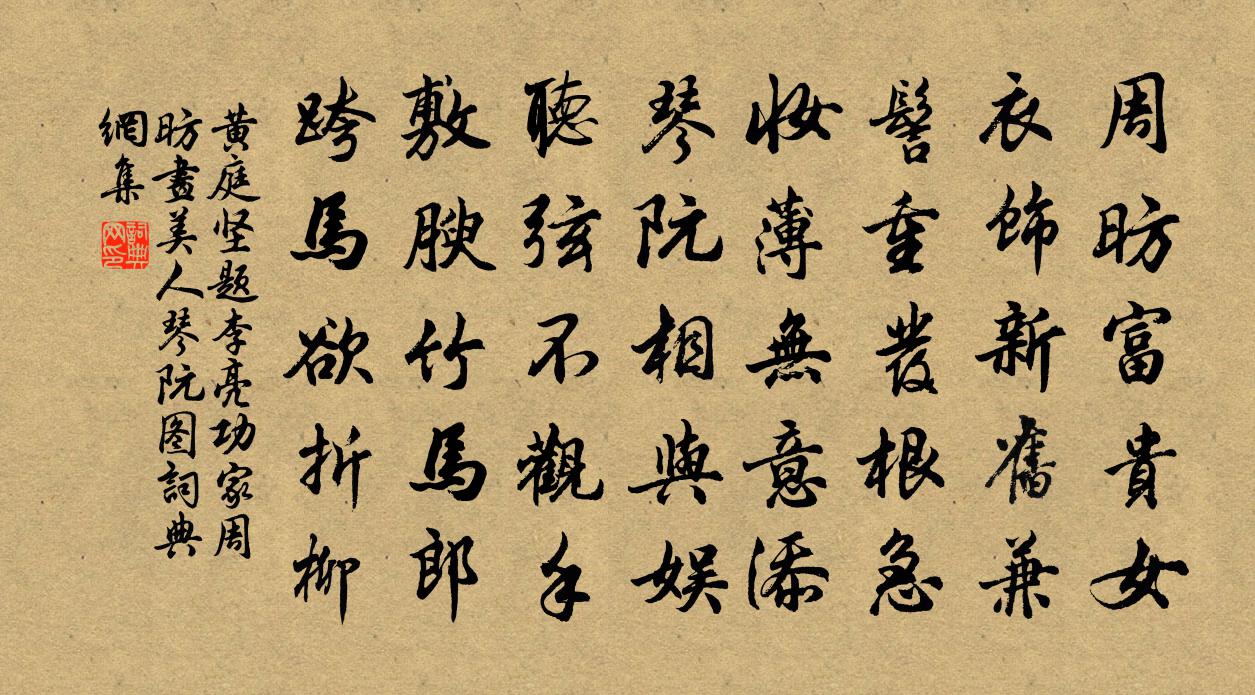 周昉富貴女
衣飾新舊兼
髻重發根急
妝薄無意添
琴阮相與娱
聽弦不觀手
敷腴竹馬郎
跨馬欲折柳
黃庭坚题李亮功家周
昉畫美人琴阮图詞典
網集
詞典网印